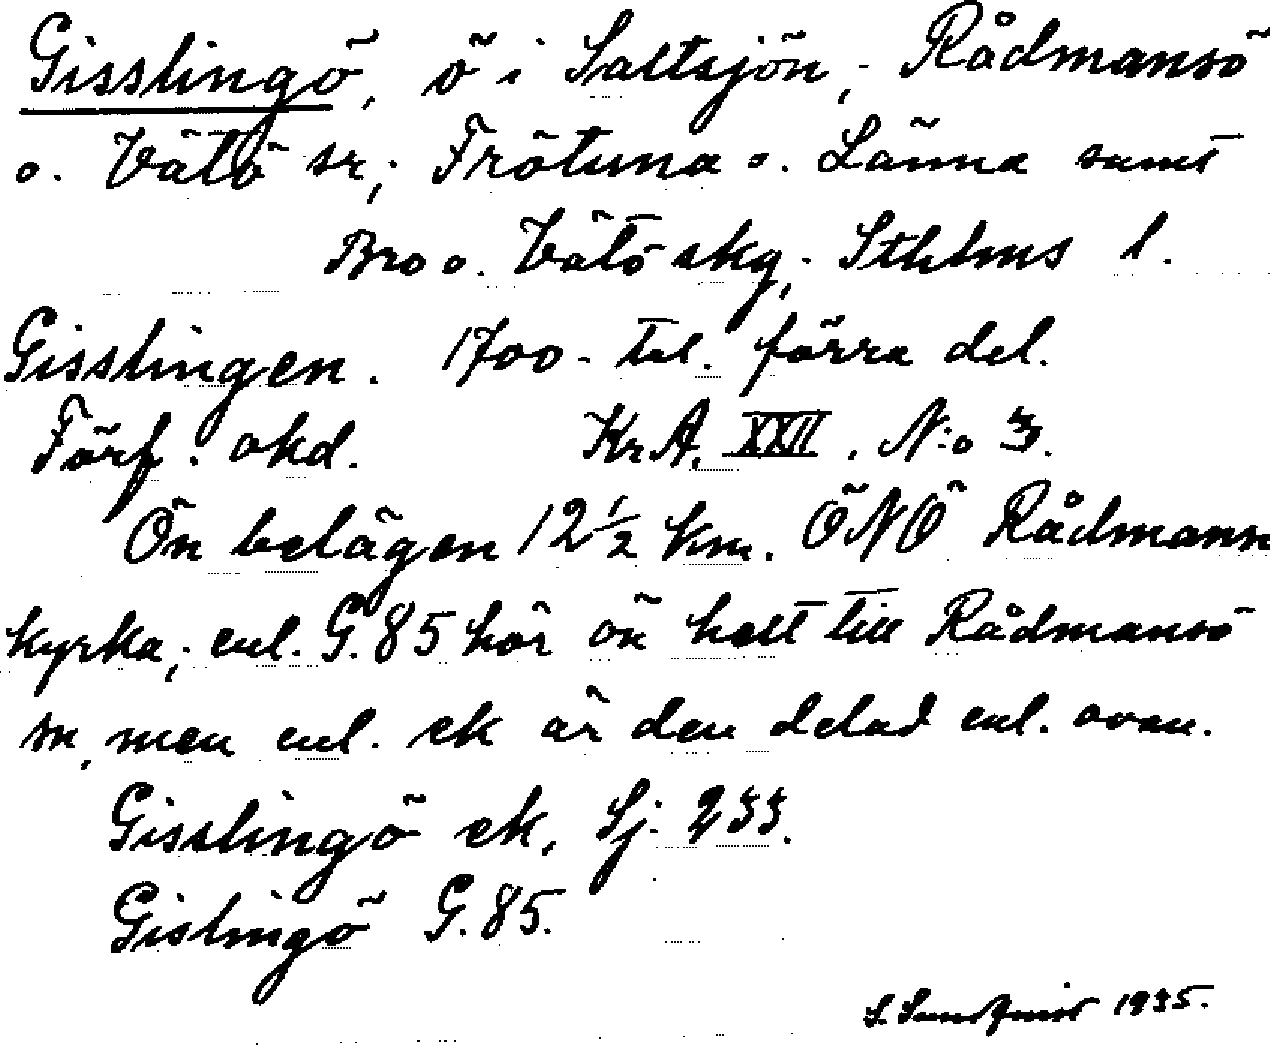 Gisslingö, ö i Saltsjön, Rådmansö
o. Vätö sr; Frötuna o. Länna samt
Bro o. Vätö skg, Sthlms l.
Gisslingen. 1700-tal. förra del.
Förf. okd. Kr A, XXII. N:o 3.
Ön belägen 12½ km. ÖNÖ Rådmansö
kyrka; enl. G. 85 hör ön helt till Rådmansö
sn, men enl. ek är den delad enl. ovan.
Gisslingö ek, Sj. 233.
Gislingö G. 85.
S. Sundquist 1935.